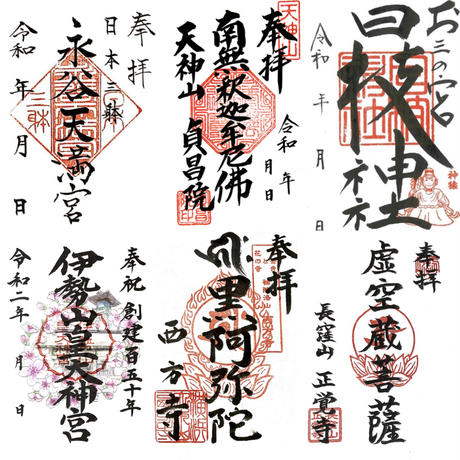 奉拝
日本三躰
永谷天満宮
令和 年 月 日
三躰
三躰
天神山
奉拝
南無釈迦牟尼佛
天神山 貞昌院
令和 年 月 日
お三の宮
日枝神社
令和 年 月 日
神猿
奉祝 創建百五十年
伊勢山皇大神宮
令和二年 月 日
奉拝
黒阿弥陀
西方寺
花の寺
横浜
奉拝
虚空蔵菩薩
長窪山 正覚寺